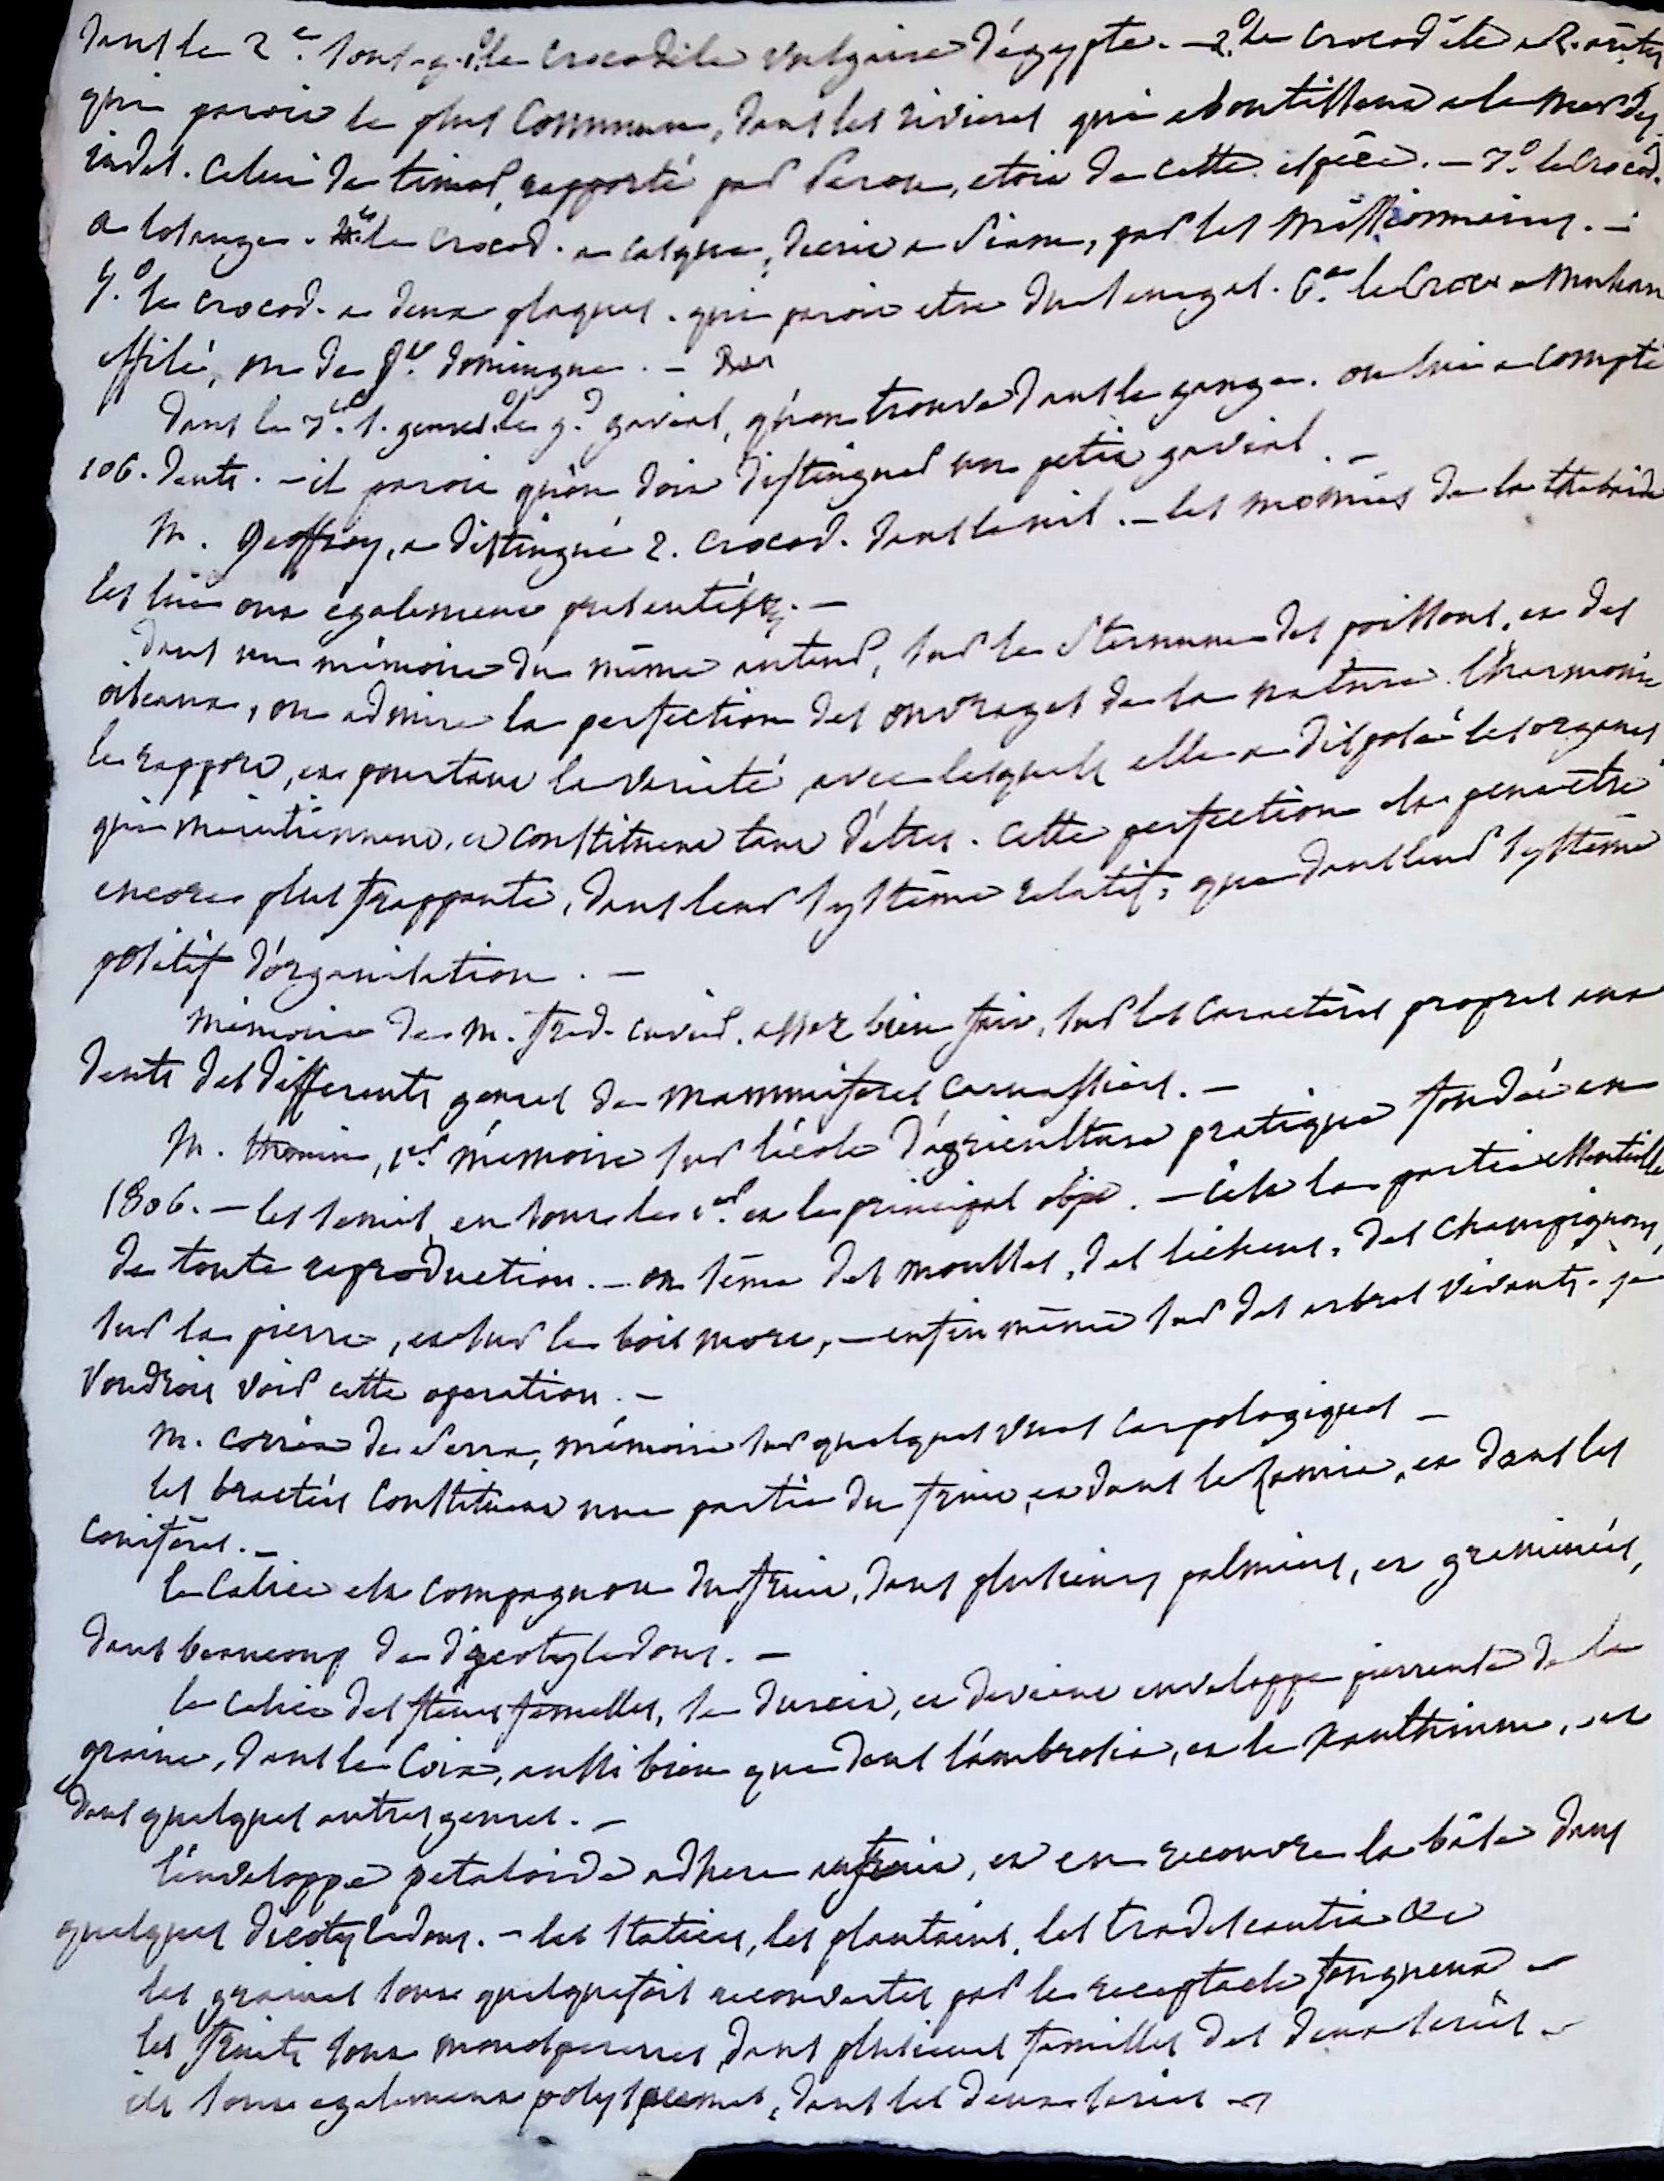 dans le 2e. sous-g. 1o. le crocodile vulgaire d'égypte. - 2o. le crocodile a 2. arêtes
qui paroit le plus commun, dans les rivieres qui aboutissent a la mer des
indes. celui de timor, rapporté par Peron, etoit de cette espèce. - 3o. le crocod.
a losange. 4e. le crocod. a casque, decrit a Siam, par les missionnaires. -
5o. le crocod. a deux plaques. qui paroit etre du senegal. 6e. le croc. a museau
effilé, ou de St. domingue. -
dans le 3e. s. genre. le gd. gavial, qu'on trouve dans le gange. on lui a compté
106. dents. - il paroit qu'on doit distinguer un petit gavial. -
M. Geoffroy, a distingué 2. crocod. dans le nil. - les momies de la thebaïde
les lui ont egalement presentés. -
dans un mémoire du même auteur, sur le sternum des poissons, et des
oiseaux, on admire la perfection des ouvrages de la nature. l'harmonie
le rapport, et pourtant la varieté avec lesquels elle a disposé les organes
qui maintiennent, et constituent tant d'etres. cette perfection est peut-être
encore plus frappante, dans leur système relatif, que dans leur système
positif d'organisation. -
mémoire de M. fred. cuvier. assez bien fait, sur les caractères propres aux
dents des differents genres de mammiferes carnassiers. -
M. thouin, 1er. mémoire sur l'école d'agriculture pratique fondée en
1806. - les semis en sont le 1er. et le principal objet. - c'est la partie essentielle
de toute reproduction. - on sème des mousses, des lichens, des champignons,
sur la pierre, et sur le bois mort, - enfin même sur des arbres vivants. je
voudrois voir cette operation. -
M. corréa de Serra, mémoire sur quelques vues carpologiques -
les bractées constituent une partie du fruit, et dans le Zamia, et dans les
conifères. -
le calice est compagnon du fruit, dans plusieurs palmiers, et graminées,
dans beaucoup de dicotyledons. -
le calice des fleurs femelles, se durcit, et devient enveloppe pierreuse de la
graine, dans le Coix, aussi bien que dans l'ambrosia, et le Xanthium, et
dans quelques autres genres. -
l'enveloppe petaloïde adhere au fruit, et en recouvre la base dans
quelques dicotyledons. - les statices, les plantains, les tradescantia &c
les graines sont quelquefois recouvertes par le receptacle fongueux -
les fruits sont monospermes, dans plusieurs familles des deux series -
ils sont egalement polyspermes, dans les deux series -